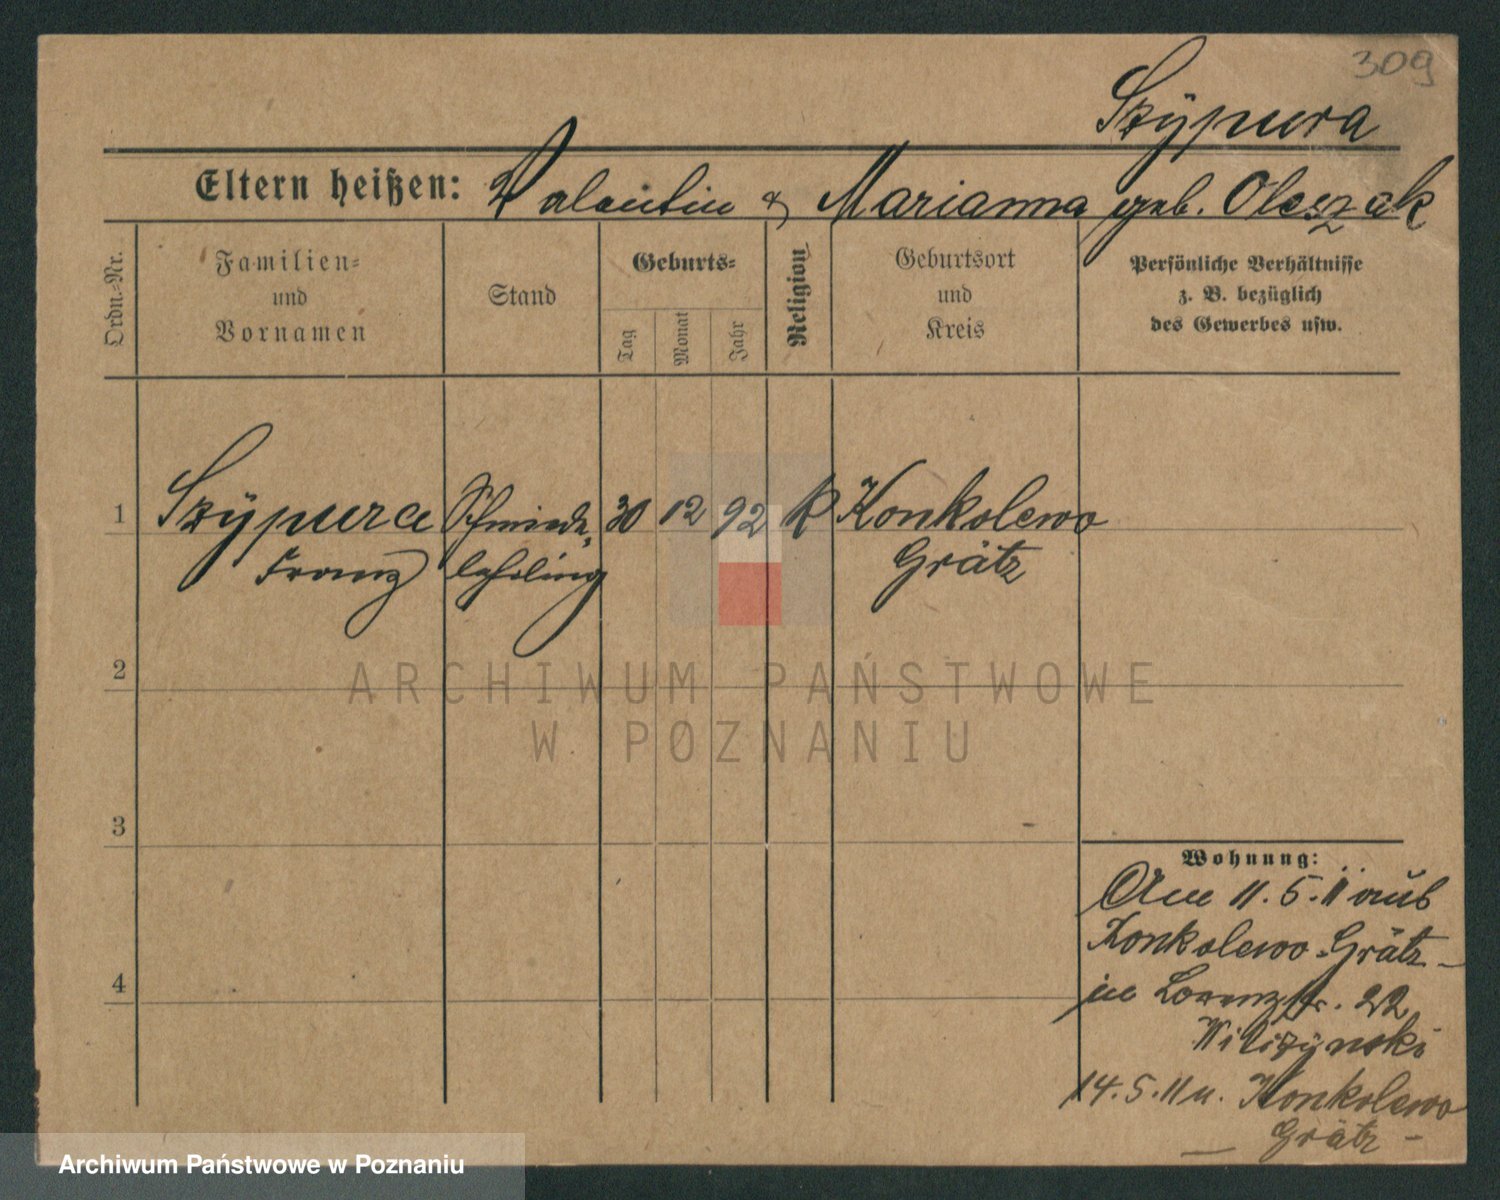 309
Szÿpura
Eltern heißen: Valentin & Marianna geb. Oleszak
Ordn.-Nr.
Familien-
und
Vornamen
Stand
Geburts-
Tag
Monat
Jahr
Religion
Geburtsort
und
Kreis
Persönliche Verhältnisse
z. B. bezüglich
des Gewerbes usw.
1 Szÿpura Schmiede- 30 12 92 K Konkolewo
Franz lehrling Grätz
2
3
4
Wohnung:
Am 11.5.11 aus
Konkolewo-Grätz-
in Lorenzstr. 22
14.5.11 n. Konkolewo
Grätz-
ARCHIWUM PAŃSTWOWE
W POZNANIU
Archiwum Państwowe w Poznaniu